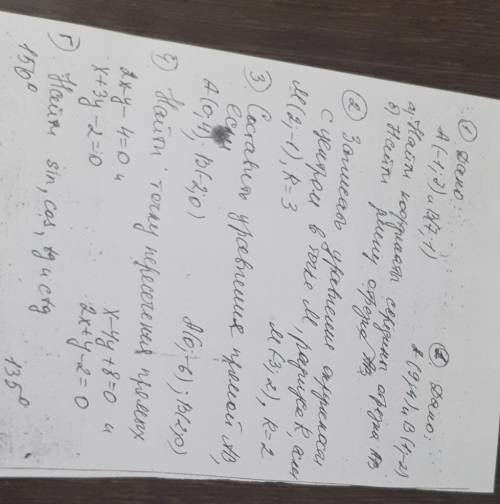 ① Дано:
А(-1;7) и В(7;-1)
② Дано:
А(9;4) и В(1;-2)
а) Найти координаты середины отрезка АВ
б) Найти длину отрезка АВ
② Записать уравнение окружности
с центром в точке М, радиуса R, если
М(2;-1), R=3
М(-3;2), R=2
③ Составить уравнения прямой АВ,
если
А(0;4); В(-2;0)
А(0;-6); В(2;0)
4) Найти точку пересечения прямых
2x-y-4=0 и
x+3y-2=0
x-4y+8=0 и
2x+y-2=0
5) Найти sin, cos, tg и ctg
150°
135°